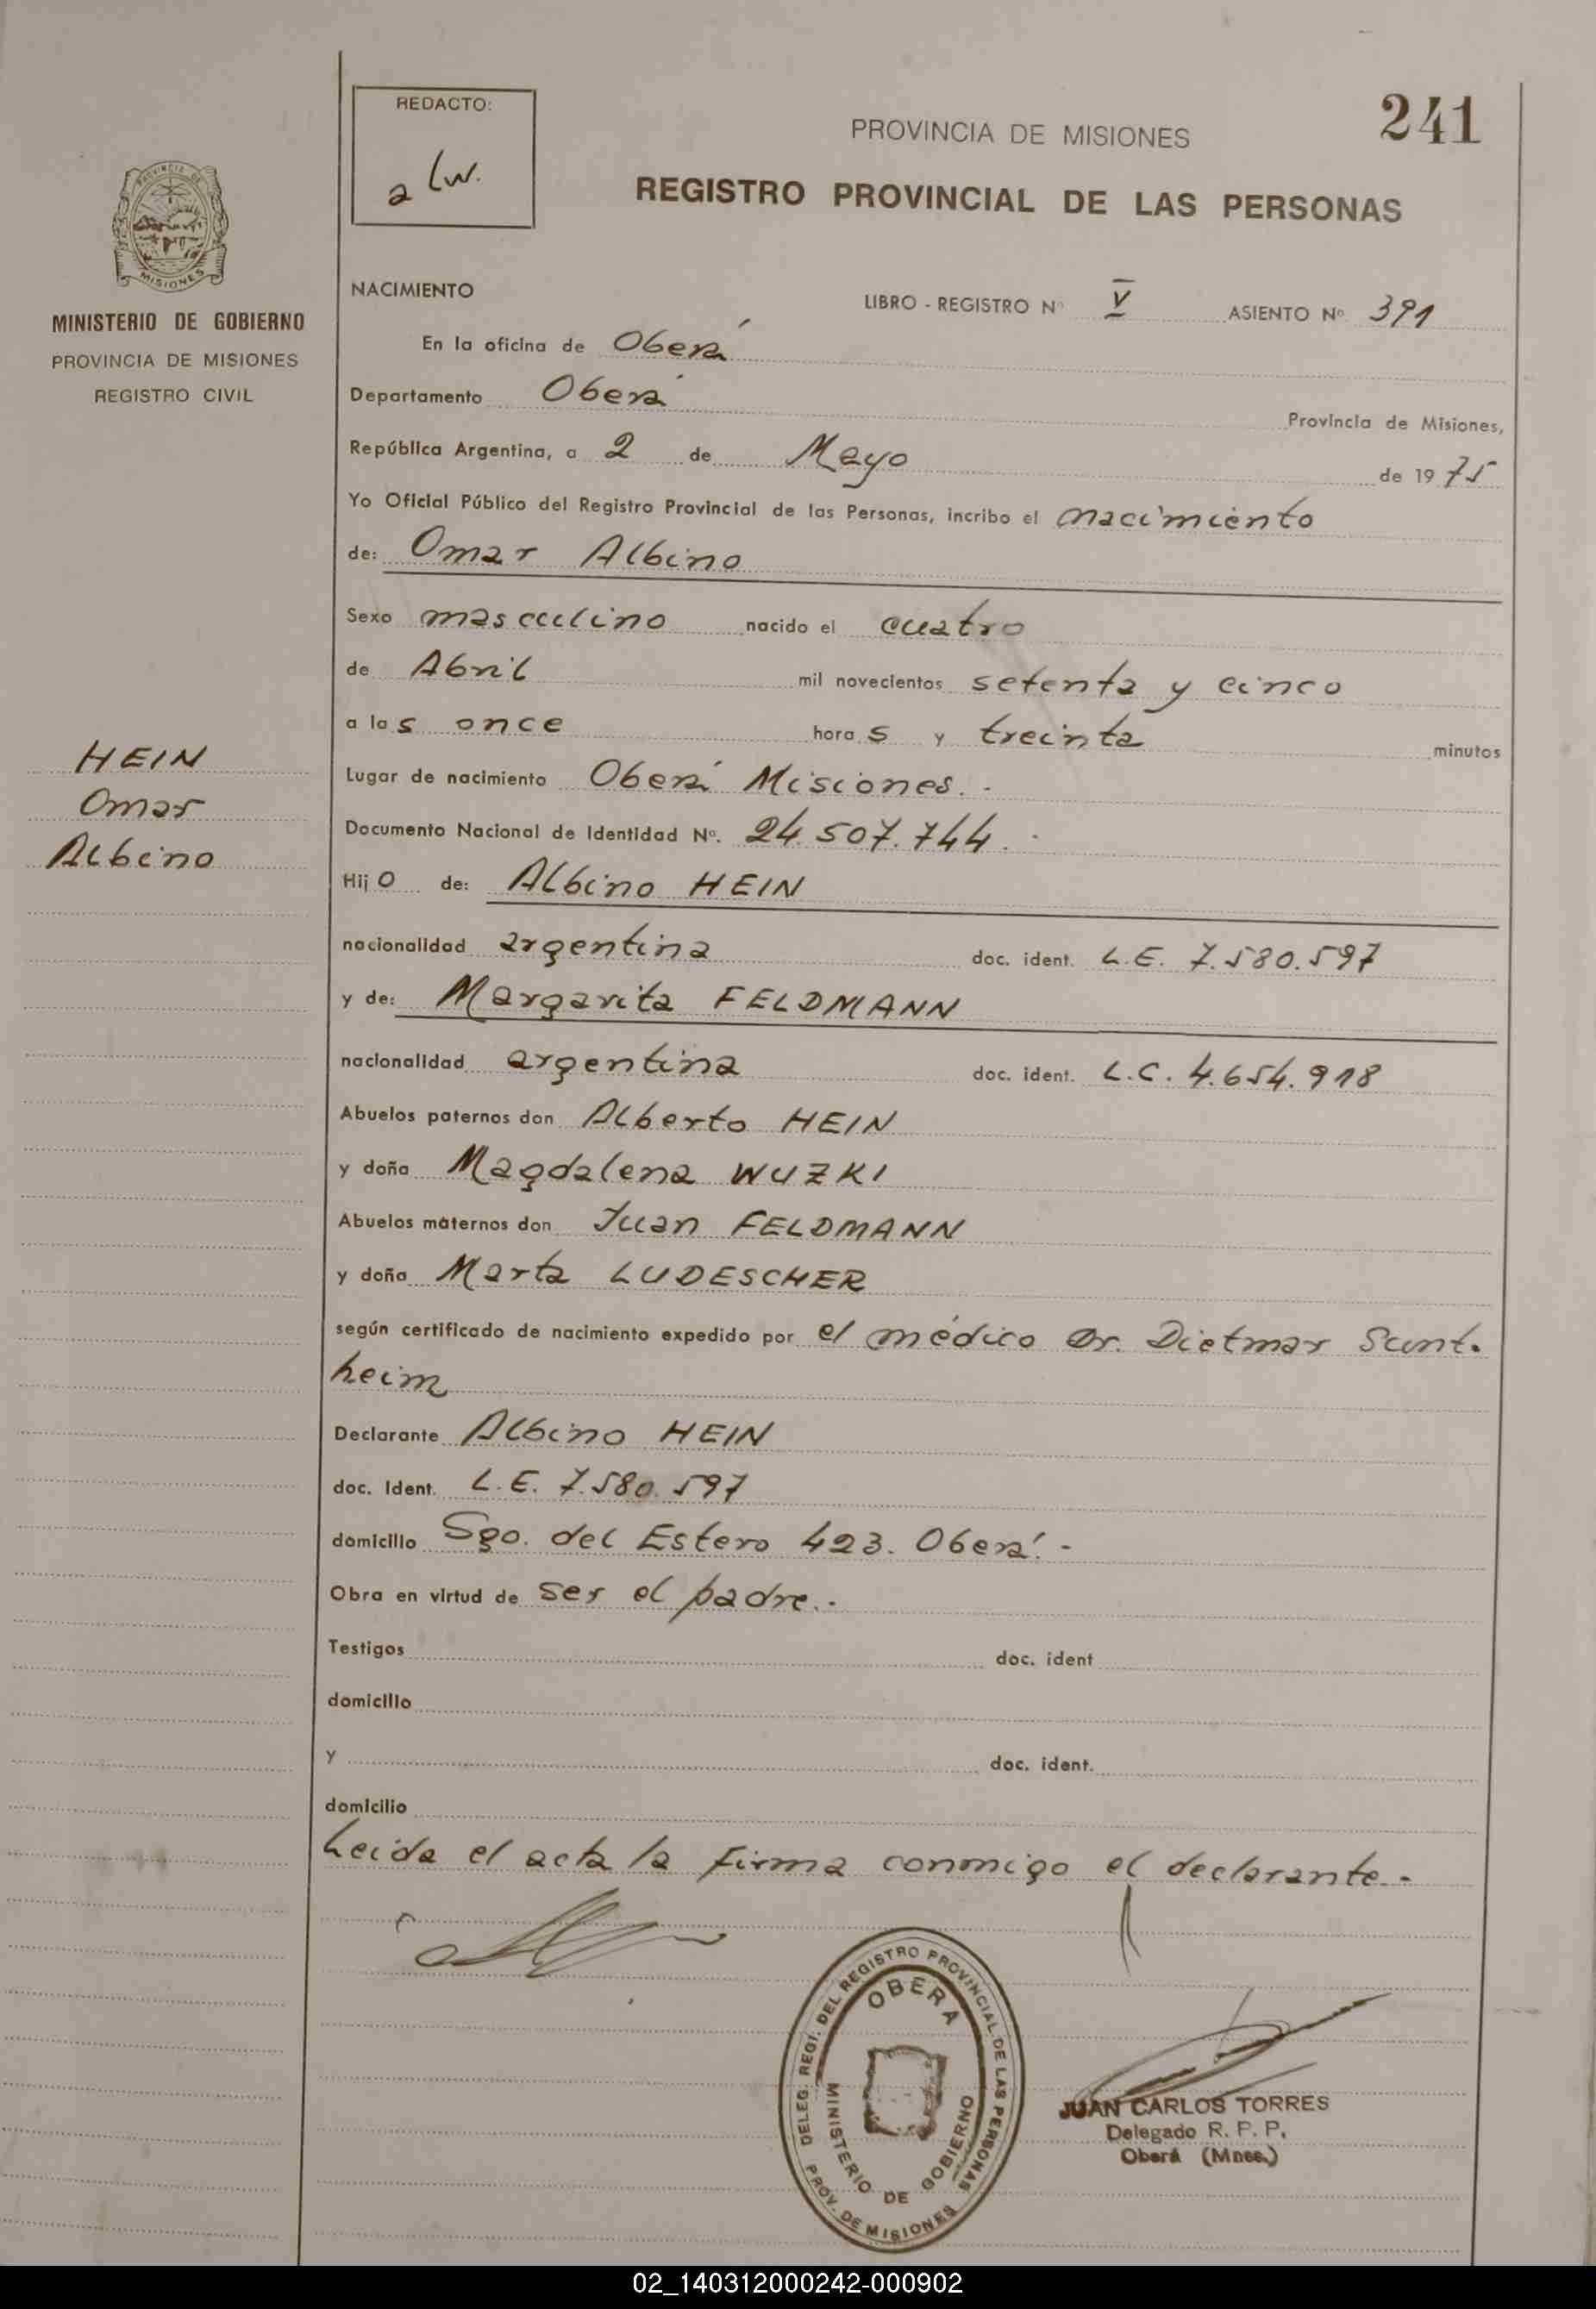 241
REDACTO:
PROVINCIA DE MISIONES
REGISTRO PROVINCIAL DE LAS PERSONAS
PROVINCIA DE
MISIONES
MINISTERIO DE GOBIERNO
PROVINCIA DE MISIONES
REGISTRO CIVIL
NACIMIENTO
LIBRO - REGISTRO Nº V ASIENTO Nº 391
En la oficina de Oberá
Departamento Oberá Provincia de Misiones,
República Argentina, a 2 de Mayo de 1975
Yo Oficial Público del Registro Provincial de las Personas, incribo el nacimiento
de: Omar Albino
Sexo masculino nacido el cuatro
de Abril mil novecientos setenta y cinco
a las once horas y treinta minutos
HEIN
Omar
Albino
Lugar de nacimiento Oberá Misiones.-
Documento Nacional de Identidad Nº. 24.507.744.-
Hijo de: Albino HEIN
nacionalidad argentina doc. ident. L.E. 7.580.597
y de: Margarita FELDMANN
nacionalidad argentina doc. ident. L.C. 4.654.918
Abuelos paternos don Alberto HEIN
y doña Magdalena WUZKI
Abuelos maternos don Juan FELDMANN
y doña Marta LUDESCHER
según certificado de nacimiento expedido por el médico Dr. Dietmar Sunt-
heim
Declarante Albino HEIN
doc. Ident. L.E. 7.580.597
domicilio Sgo. del Estero 423. Oberá.-
Obra en virtud de ser el padre.-
Testigos doc. ident
domicilio
y doc. ident.
domicilio
Leida el acta la firma conmigo el declarante.-
DELEG. REGI. DEL REGISTRO PROVINCIAL DE LAS PERSONAS
OBERA
MINISTERIO DE GOBIERNO
PROV. DE MISIONES
JUAN CARLOS TORRES
Delegado R. P. P.
Oberá (Mnes.)
02_140312000242-000902